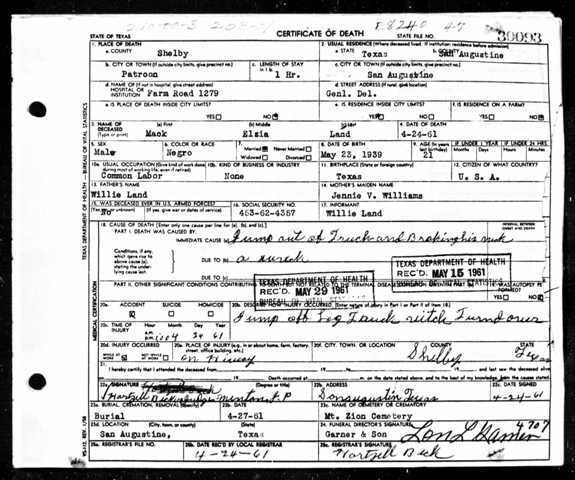 STATE OF TEXAS
CERTIFICATE OF DEATH
STATE FILE NO.
30093
1. PLACE OF DEATH
a. COUNTY
Shelby
2. USUAL RESIDENCE (Where deceased lived. If institution residence before admission)
a. STATE
Texas
b. COUNTY
San Augustine
b. CITY OR TOWN (If outside city limits, give precinct no.)
Patroon
c. LENGTH OF STAY
1 Hr.
c. CITY OR TOWN (If outside city limits, give precinct no.)
San Augustine
d. NAME OF (If not in hospital, give street address)
HOSPITAL OR
INSTITUTION
Farm Road 1279
d. STREET ADDRESS (If rural, give location)
Genl. Del.
e. IS PLACE OF DEATH INSIDE CITY LIMITS?
YES NO
e. IS RESIDENCE INSIDE CITY LIMITS?
YES NO
f. IS RESIDENCE ON A FARM?
YES NO
3. NAME OF
DECEASED
(Type or print)
(a) First
Mack
(b) Middle
Elzia
(c) Last
Land
4. DATE OF DEATH
4-24-61
5. SEX
Male
6. COLOR OR RACE
Negro
7. Married Never Married
Widowed Divorced
8. DATE OF BIRTH
May 23, 1939
9. AGE
21
IF UNDER 1 YEAR
Months Days
IF UNDER 24 HRS.
Hours Min.
10a. USUAL OCCUPATION (Give kind of work done
during most of working life, even if retired)
Common Labor
10b. KIND OF BUSINESS OR INDUSTRY
None
11. BIRTHPLACE (State or foreign country)
Texas
12. CITIZEN OF WHAT COUNTRY?
U. S. A.
13. FATHER'S NAME
Willie Land
14. MOTHER'S MAIDEN NAME
Jennie V. Williams
15. WAS DECEASED EVER IN U.S. ARMED FORCES?
(Yes, no, or unknown) (If yes, give war or dates of service)
No
16. SOCIAL SECURITY NO.
453-62-4357
17. INFORMANT
Willie Land
18. CAUSE OF DEATH (Enter only one cause per line for (a), (b), and (c).)
PART I. DEATH WAS CAUSED BY:
IMMEDIATE CAUSE (a)
Jump out of Truck and Braking his neck
Conditions, if any,
which gave rise to
above cause (a),
stating the under-
lying cause last
DUE TO (b)
a wreck
DUE TO (c)
TEXAS DEPARTMENT OF HEALTH
REC'D. MAY 15 1961
TEXAS DEPARTMENT OF HEALTH
REC'D MAY 29 1961
BUREAU OF VITAL STATISTICS
19. WAS AUTOPSY PERFORMED?
YES NO
MEDICAL CERTIFICATION
20a.
ACCIDENT SUICIDE HOMICIDE
20b. DESCRIBE HOW INJURY OCCURRED. (Enter nature of injury in Part I or Part II of item 18)
20c. TIME OF
INJURY
20d. INJURY OCCURRED
20e. PLACE OF INJURY (e.g., in or about home, farm, factory,
street, office building, etc.)
20f. CITY, TOWN, OR LOCATION
COUNTY
Shelby
STATE
Texas
21. I hereby certify that I attended the deceased from
22a. SIGNATURE
(Degree or title)
22b. ADDRESS
San Augustine Texas
22c. DATE SIGNED
4-24-61
23a. BURIAL, CREMATION, REMOVAL
Burial
23b. DATE
4-27-61
23c. NAME OF CEMETERY OR CREMATORY
Mt. Zion Cemetery
23d. LOCATION (City, town, or county) (State)
San Augustine, Texas
24. FUNERAL DIRECTOR'S SIGNATURE
Garner & Son
4707
25a. REGISTRAR'S FILE NO.
25b. DATE REC'D BY LOCAL REGISTRAR
4-24-61
25c. REGISTRAR'S SIGNATURE
TEXAS DEPARTMENT OF HEALTH — BUREAU OF VITAL STATISTICS